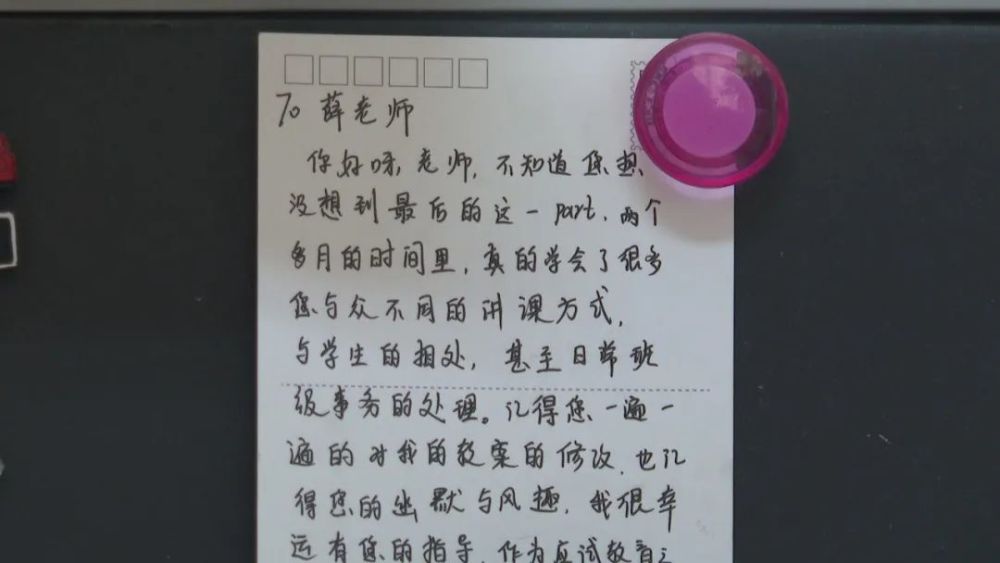 To 薛老师
你好呀,老师,不知道您想
没想到最后的这一part,两个
多月的时间里,真的学会了很多
您与众不同的讲课方式,
与学生的相处,甚至日常班
级事务的处理。记得您一遍一
遍的对我的教案的修改,也记
得您的幽默与风趣,我很幸
运有您的指导,作为应试教育之